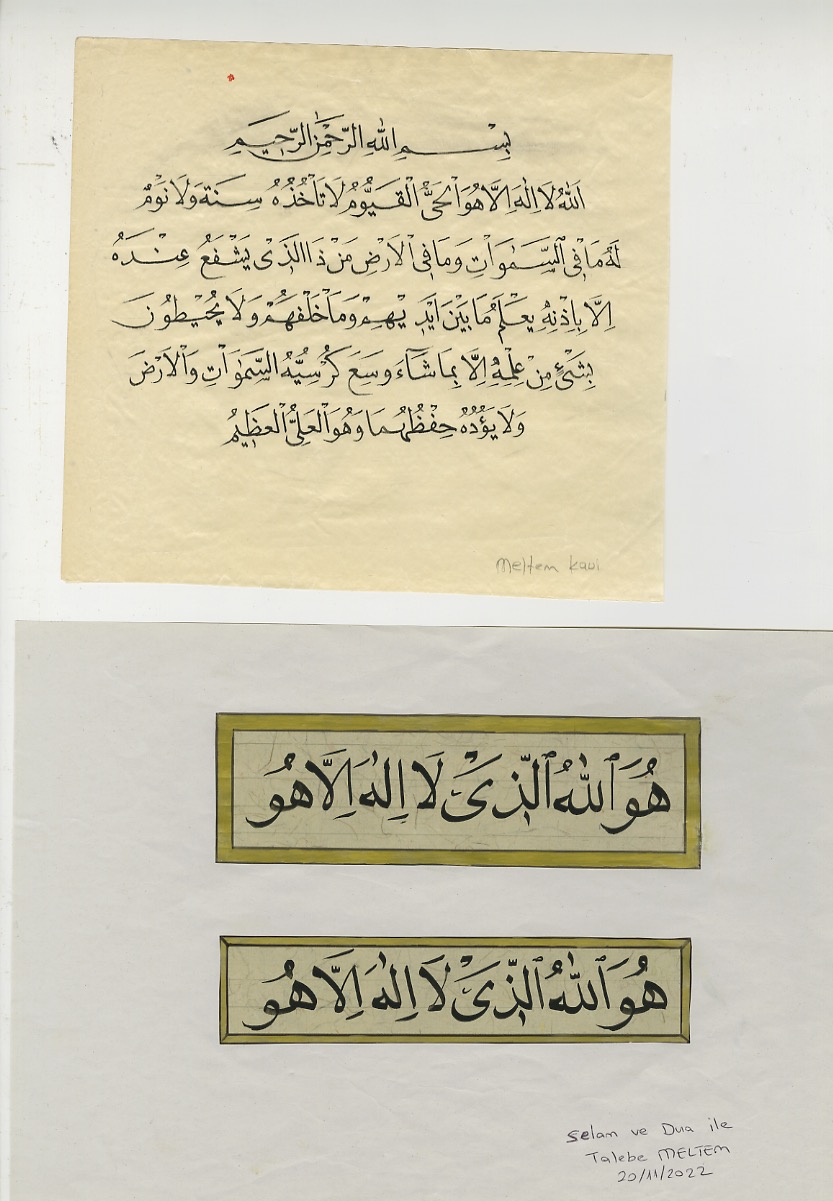 بِسْمِ اللهِ الرَّحْمٰنِ الرَّحِيمِ
اَللهُ لَا اِلٰهَ اِلَّا هُوَ اَلْحَىُّ الْقَيُّومُ لَا تَأْخُذُهُ سِنَةٌ وَلَا نَوْمٌ
لَهُ مَا فِى السَّمٰوَاتِ وَمَا فِى الْاَرْضِ مَنْ ذَا الَّذِى يَشْفَعُ عِنْدَهُ
اِلَّا بِاِذْنِهِ يَعْلَمُ مَا بَيْنَ اَيْدِيْهِمْ وَمَا خَلْفَهُمْ وَلَا يُحِيْطُونَ
بِشَىْءٍ مِنْ عِلْمِهِ اِلَّا بِمَا شَآءَ وَسِعَ كُرْسِيُّهُ السَّمٰوَاتِ وَالْاَرْضَ
وَلَا يَؤُدُهُ حِفْظُهُمَا وَهُوَ الْعَلِىُّ الْعَظِيمُ
Meltem kavi
هُوَ اللّٰهُ الَّذِى لَا اِلٰهَ اِلَّا هُو
هُوَ اللّٰهُ الَّذِى لَا اِلٰهَ اِلَّا هُو
Selam ve Dua ile
Talebe MELTEM
20/11/2022